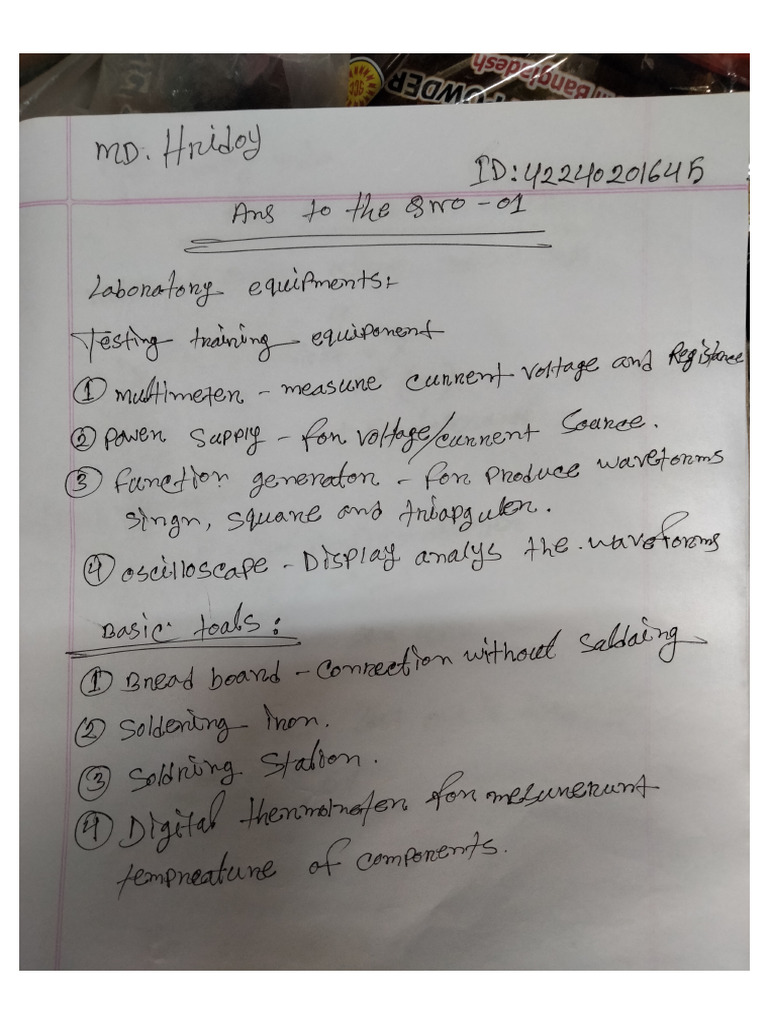 Bangladesh
POWDER
MD. Hridoy
ID: 42240201645
Ans to the QNO-01
Laboratory equipments:
Testing training equiponent
① multimeter - measure current voltage and Registance
② Power supply - for voltage/current source.
③ Function generator - for produce waveforms
singn, square and triapguler.
④ oscilloscape - Display analys the waveforms
Basic toals:
① Bread board - Connection without saldaing
② Soldering iron.
③ Soldning Station.
④ Digital thermometer for mesurerunt
tempreature of components.